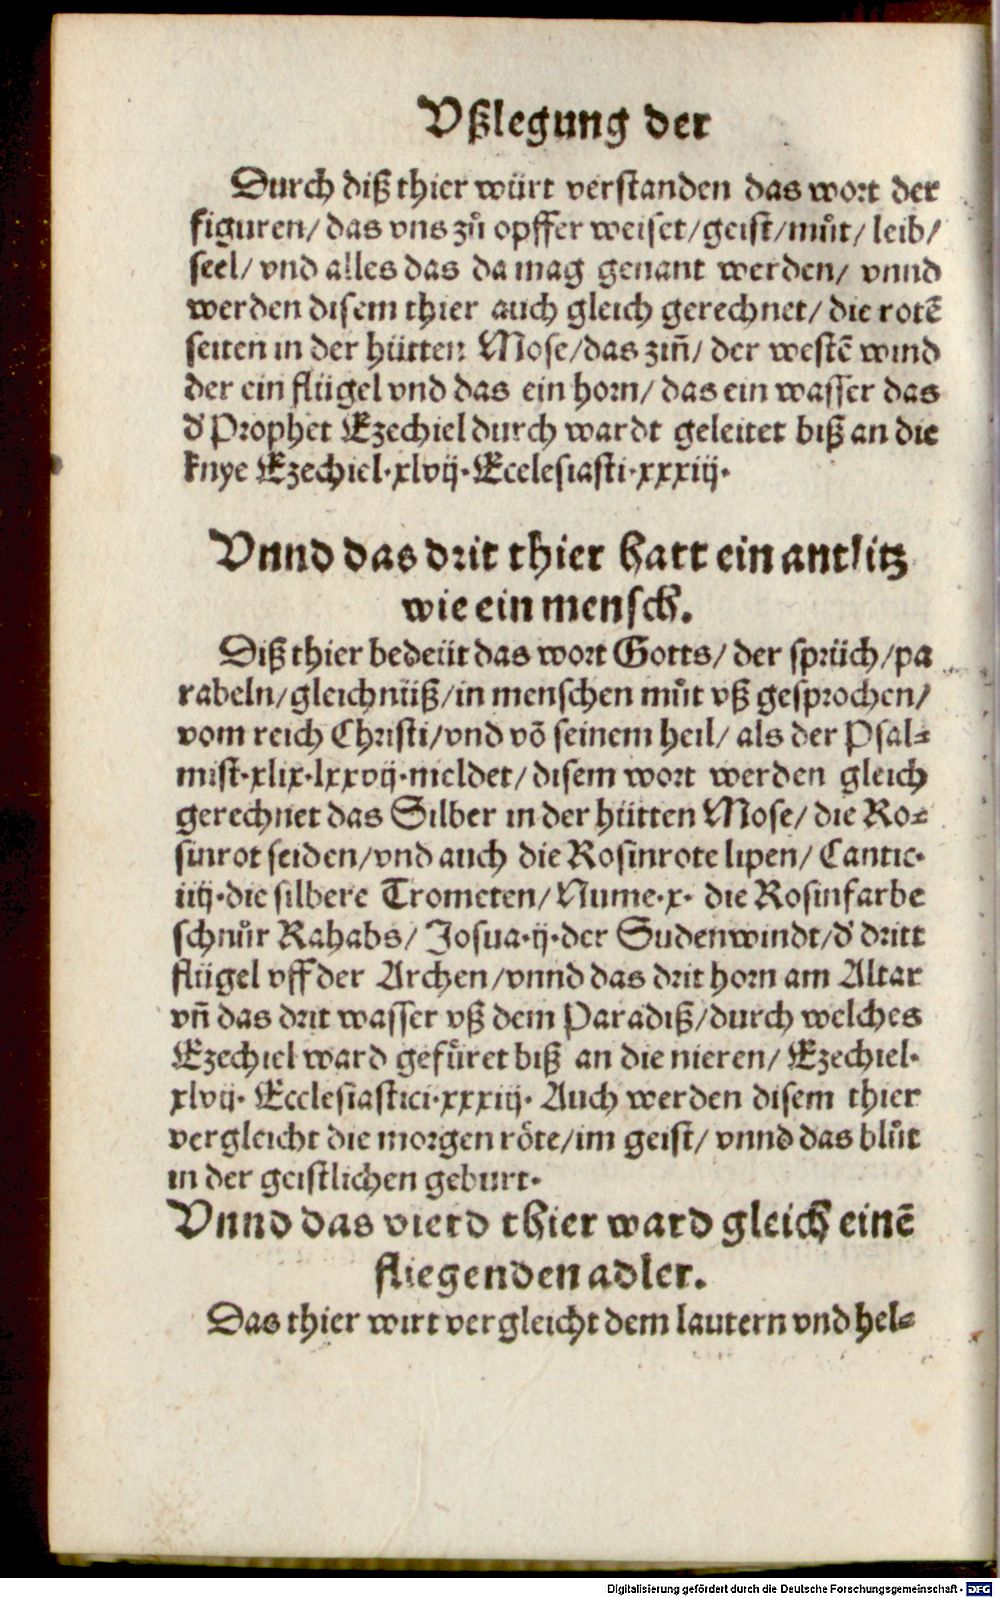 Vßlegung der
Durch diß thier würt verstanden das wort der
figuren/ das vns zů opffer weiset/geist/můt/ leib/
seel/ vnd alles das da mag genant werden/ vnnd
werden disem thier auch gleich gerechnet/ die rotē
seiten in der hütten Mose/das zin̄/ der westē wind
der ein flügel vnd das ein horn/ das ein wasser das
d' Prophet Ezechiel durch wardt geleitet biß an die
knye Ezechiel·xlvij·Ecclesiasti·xxxiij·
Vnnd das drit thier hatt ein antlitz
wie ein mensch.
Diß thier bedeüt das wort Gotts/ der sprüch/pa
rabeln/gleichnüß/in menschen můt vß gesprochen/
vom reich Christi/vnd vō seinem heil/ als der Psal⸗
mist·xlix·lxxvij·meldet/ disem wort werden gleich
gerechnet das Silber in der hütten Mose/ die Ro⸗
sinrot seiden/vnd auch die Rosinrote lipen/ Cantic·
iiij·die silbere Trometen/ Nume·x· die Rosinfarbe
schnůr Rahabs/ Josua·ij·der Sudenwindt/d' dritt
flügel vff der Archen/vnnd das drit horn am Altar
vn̄ das drit wasser vß dem Paradiß/durch welches
Ezechiel ward gefůret biß an die nieren/ Ezechiel·
xlvij· Ecclesiastici·xxxiij· Auch werden disem thier
vergleicht die morgen röte/im geist/ vnnd das blůt
in der geistlichen geburt·
Vnnd das vierd thier ward gleich einē
fliegenden adler.
Das thier wirt vergleicht dem lautern vnd hel⸗
Digitalisierung gefördert durch die Deutsche Forschungsgemeinschaft - DFG